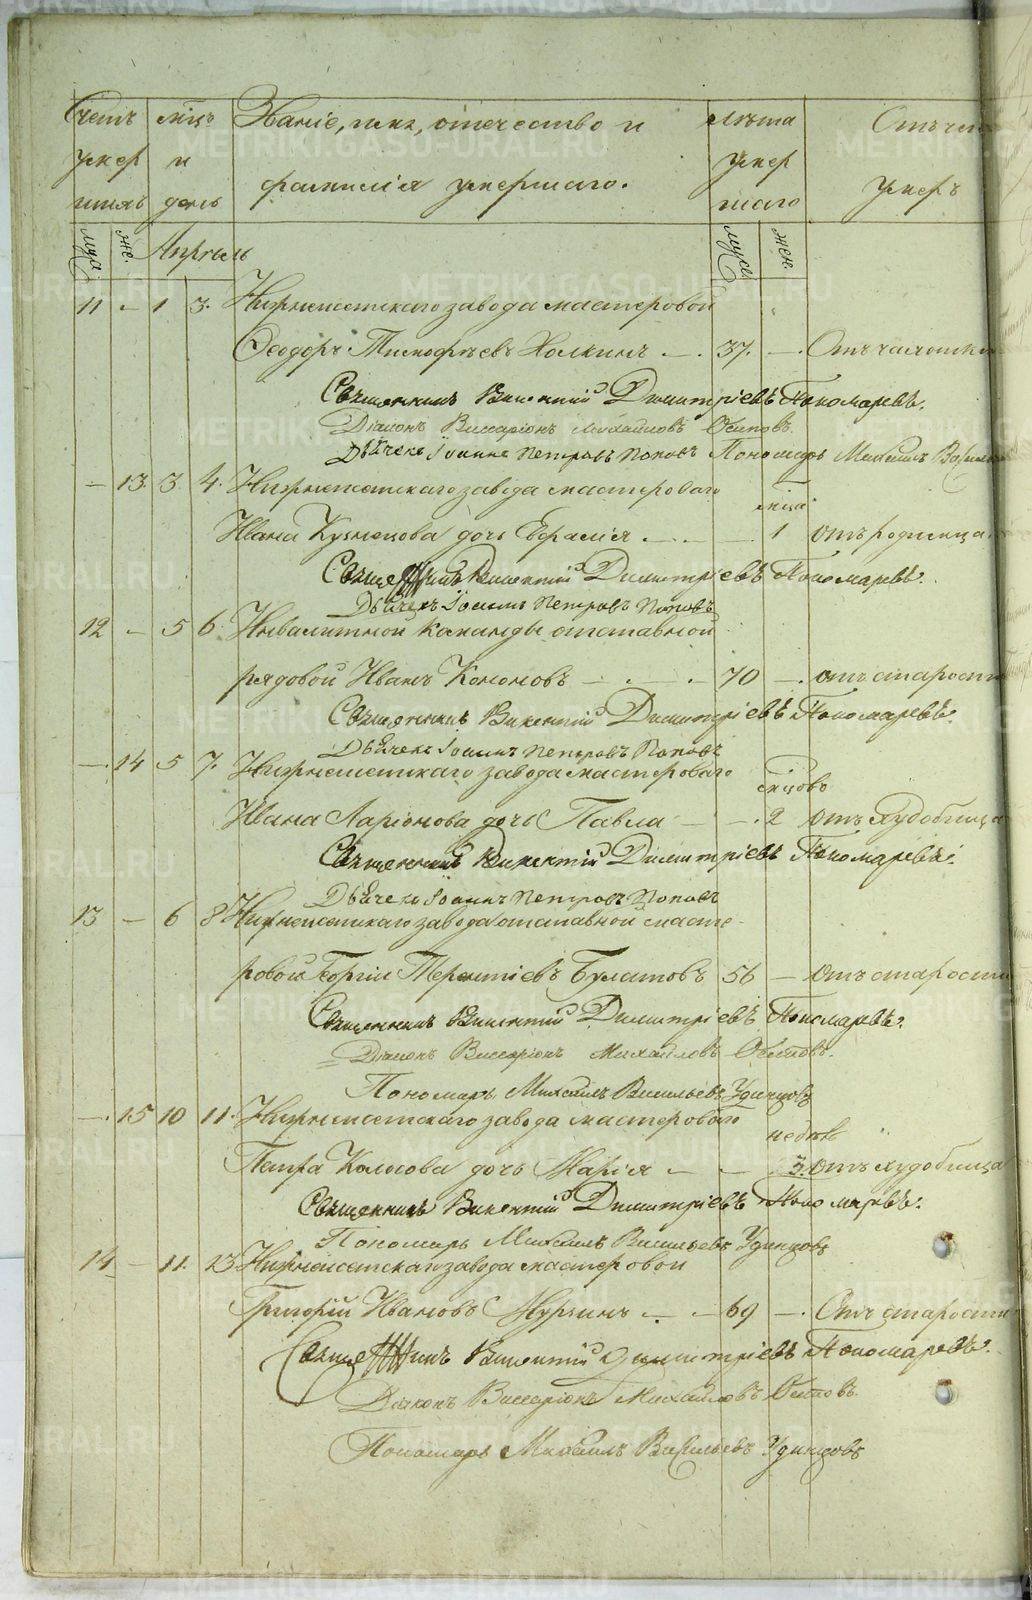 Счетъ мцъ Званіе, имя, отечество и лѣта Отъ чего
умер и фамилія умершаго. умер умеръ
шихъ день шаго
муж. же. Апрѣль муж. жен.
11 - 1 3. Нижнеисетскаго завода мастеровой
Феодоръ Тимофѣевъ Холкинъ - . 37. - . Отъ чахотки
Священникъ Викентій Димитріевъ Пономаревъ.
Діаконъ Виссаріонъ Михайловъ Осиповъ.
Дьячекъ Іоаннъ Петровъ Поповъ Пономарь Михаилъ
- 13. 3 4. Нижнеисетскаго завода мастероваго
Ивана Кузнецова дочь Евфалія - . - 1 отъ родимца.
Священникъ Викентій Димитріевъ Пономаревъ.
Дьячекъ Іоаннъ Петровъ Поповъ
12 - 5 6. Инвалитной команды отставной
рядовой Иванъ Кононовъ - . - . 70 - . отъ старости
Священникъ Викентій Димитріевъ Пономаревъ.
Дьячекъ Іоаннъ Петровъ Поповъ
- . 14 5 7. Нижнеисетскаго завода мастероваго
мцовъ
Ивана Ларіонова дочь Павла - - . 2 отъ худобища
Священникъ Викентій Димитріевъ Пономаревъ.
Дьячекъ Іоаннъ Петровъ Поповъ
13 - 6 8 Нижнеисетскаго завода отставной масте-
ровой Георгій Терентіевъ Булатовъ 56 - Отъ старости
Священникъ Викентій Димитріевъ Пономаревъ.
Діаконъ Виссаріонъ Михайловъ Осиповъ.
Пономарь Михаилъ Васильевъ Удинцовъ
- . 15 10 11. Нижнеисетскаго завода мастероваго
недѣль
Петра Колосова дочь Марія - - 3. Отъ худобища
Священникъ Викентій Димитріевъ Пономаревъ.
Пономарь Михаилъ Васильевъ Удинцовъ
14 - 11. 13 Нижнеисетскаго завода мастеровой
Григорій Ивановъ Мурзинъ - . - 69 - . Отъ старости
Священникъ Викентій Димитріевъ Пономаревъ.
Діаконъ Виссаріонъ Михайловъ Осиповъ.
Пономарь Михаилъ Васильевъ Удинцовъ
METRIKI.GASO-URAL.RU